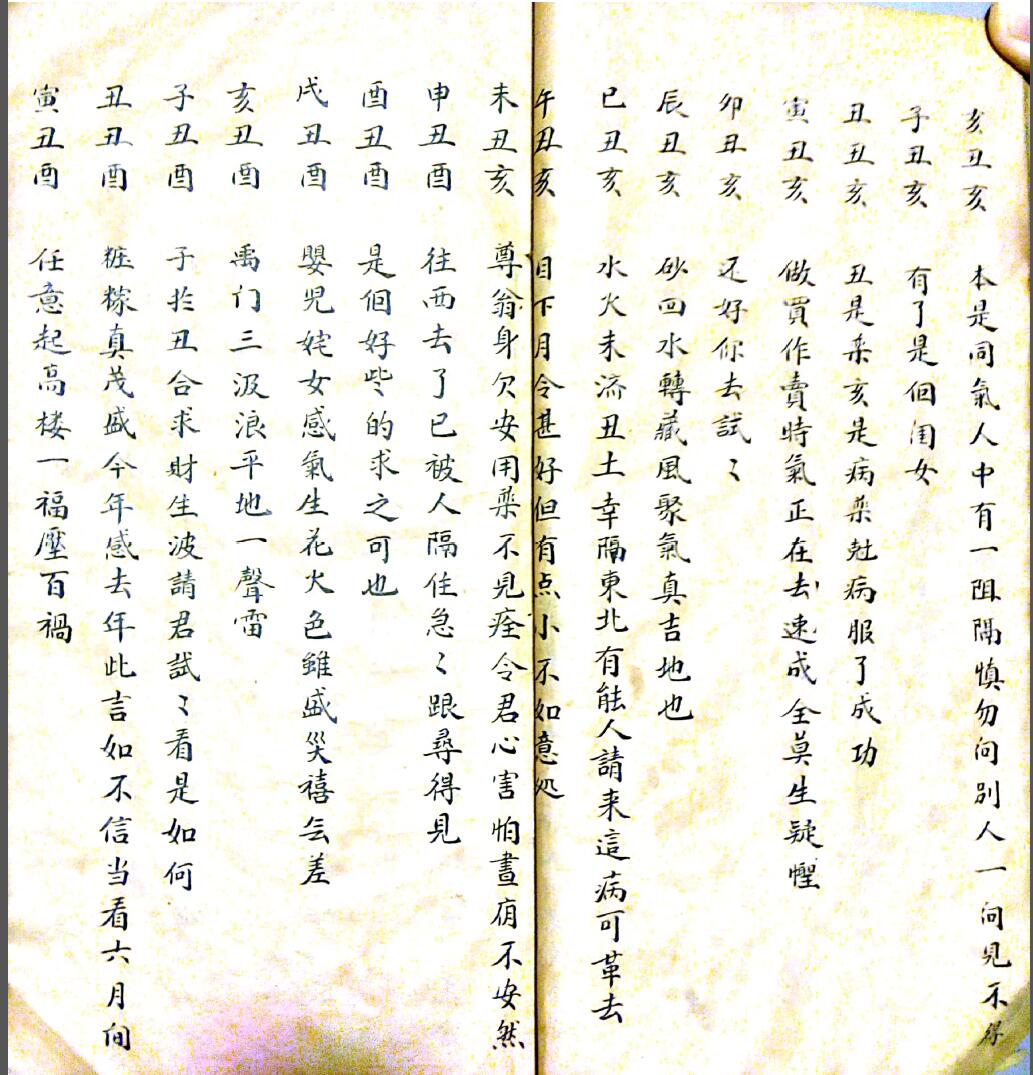 亥丑亥 本是同氣人中有一阻隔慎勿问别人一问見不得
子丑亥 有了是個闺女
丑丑亥 丑是薬亥是病薬尅病服了成功
寅丑亥 做買作賣時氣正在去速成全莫生疑
卯丑亥 还好你去試〻
辰丑亥 砂回水轉藏風聚氣真吉地也
巳丑亥 水火未济丑土幸隔東北有能人請来這病可革去
午丑亥 目下月令甚好但有点小不如意处
未丑亥 尊翁身欠安用薬不見痊令君心害怕晝夜不安然
申丑酉 往西去了已被人隔住急〻跟尋得見
酉丑酉 是個好些的求之可也
戌丑酉 嬰児姹女感氣生花火色雖盛災禧無差
亥丑酉 禹门三汲浪平地一聲雷
子丑酉 子扵丑合求財生波請君試〻看是如何
丑丑酉 粧稼真茂盛今年感去年此言如不信当看六月间
寅丑酉 任意起高楼一福壓百禍